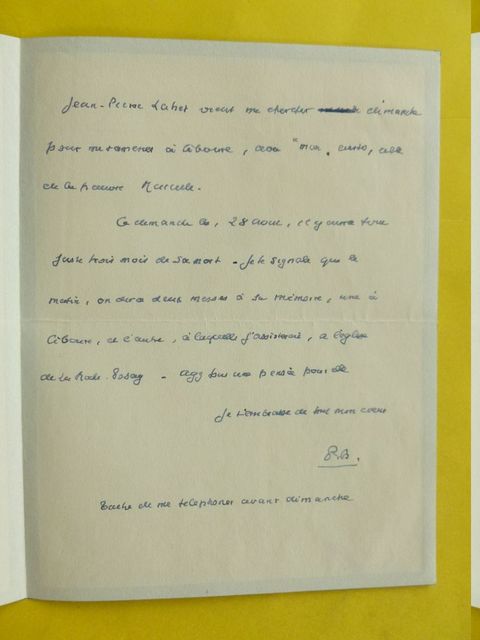 Jean-Pierre Lahet vient me chercher dimanche
pour me ramener à Ciboure, dans "mon, enfin, celle
de la pauvre Marcelle.
Ce dimanche là, 28 août, il y aura
juste trois mois de sa mort - Je te signale que le
matin, on dira deux messes à sa mémoire, une à
Ciboure, et l'autre, à laquelle j'assisterai, à l'église
de La Roche-Posay - aye une pensée pour elle
Je t'embrasse de tout mon coeur
P.B.
Tache de me telephoner avant dimanche